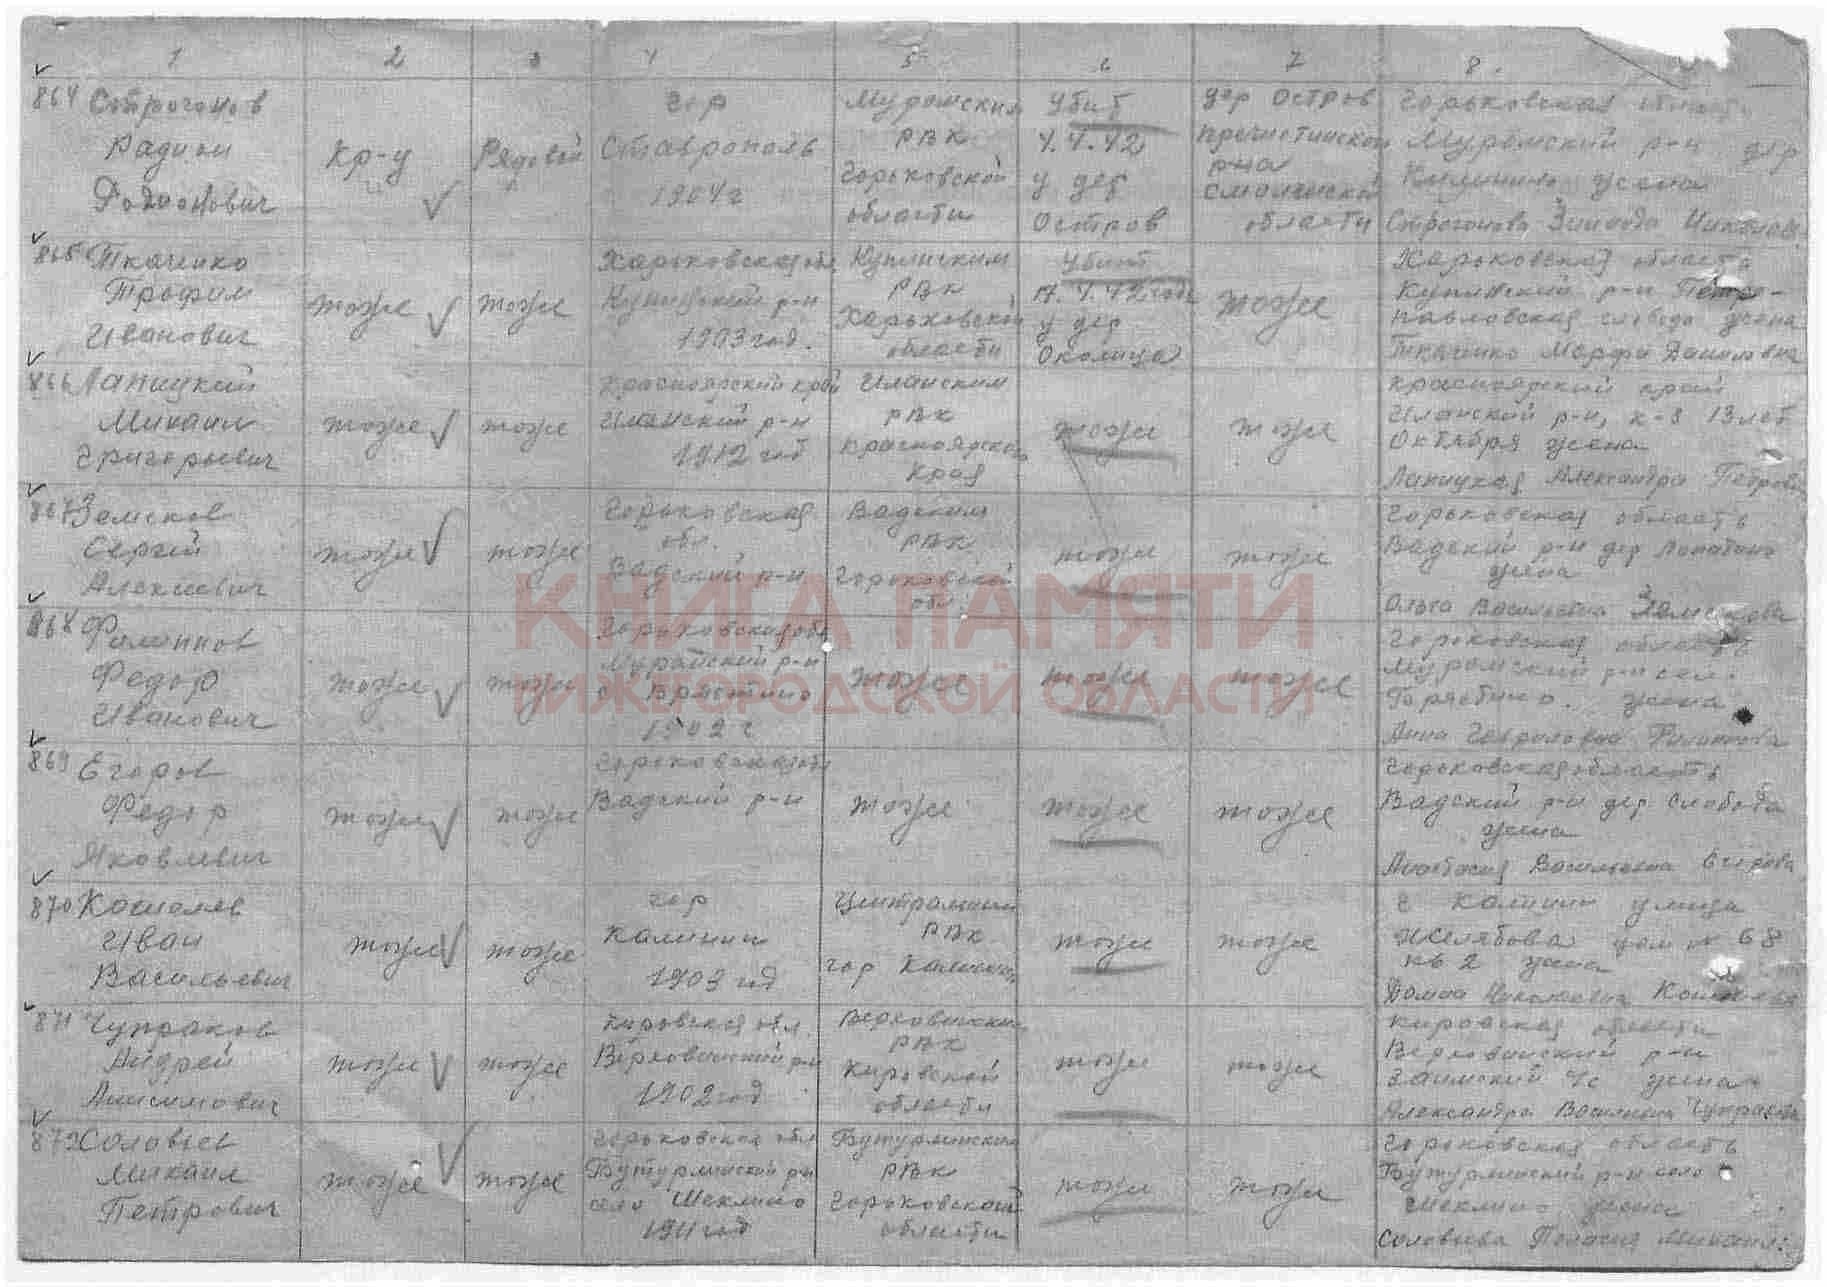 1 2 3 4 5 6 7 8.
864 Строгонов
Радион
Родионович
Кр-ц
Рядовой
гор
Ставрополь
1904 г
Муромским
РВК
Горьковской
области
Убит
4.4.42
у дер
Остров
дер Остров
Пречистинской
р-на
Смоленской
области
Горьковская область
Муромский р-н дер
жена
Строгонова Зинаида
865 Ткаченко
Трофим
Иванович
тоже
тоже
Харьковская обл
Купянский р-н
1903 год.
Купянским
РВК
Харьковской
области
Убит
17.4.42 года
у дер
Околица
тоже
Харьковская область
Купянский р-н Петро-
павловская слобода жена
Ткаченко Марфа Даниловна
866 Лапицкий
Михаил
Григорьевич
тоже
тоже
Красноярский край
Иланский р-н
1912 год
Иланским
РВК
Красноярского
края
тоже
тоже
Красноярский край
Иланский р-н, к-з 13 лет
Октября жена
Лапицкая Александра Петровна
867 Земсков
Сергей
Алексеевич
тоже
тоже
Горьковская
обл.
Вадский р-н
Вадским
РВК
Горьковской
обл.
тоже
тоже
Горьковская область
Вадский р-н дер Лопатино
жена
Ольга Васильевна Земскова
КНИГА ПАМЯТИ
НИЖЕГОРОДСКОЙ ОБЛАСТИ
868 Филиппов
Федор
Иванович
тоже
тоже
Горьковская обл
р-н
1902 г
тоже
тоже
тоже
Горьковская область
Муромский р-н сел.
жена
Анна Гавриловна Филиппова
869 Егоров
Федор
Яковлевич
тоже
тоже
Горьковская обл
Вадский р-н
тоже
тоже
тоже
Горьковская область
Вадский р-н дер Слобода
жена
Анастасия Васильевна Егорова
870 Кошелев
Иван
Васильевич
тоже
тоже
гор
Калинин
1903 год
Центральным
РВК
гор Калинин
тоже
тоже
г Калинин улица
Желябова дом № 68
кв 2 жена
Домна Николаевна
871 Чупраков
Андрей
Анисимович
тоже
тоже
Кировская обл.
Верховинский р-н
1902 год
Верховинским
РВК
Кировской
области
тоже
тоже
Кировская области
Верховинский р-н
Заимский с/с жена
Александра Васильевна Чупракова
872 Соловьев
Михаил
Петрович
тоже
тоже
Горьковская обл
Бутурлинский р-н
село Шеклино
1911 год
Бутурлинским
РВК
Горьковской
области
тоже
тоже
Горьковская область
Бутурлинский р-н село
Шеклино жена
Соловьева Пелагея